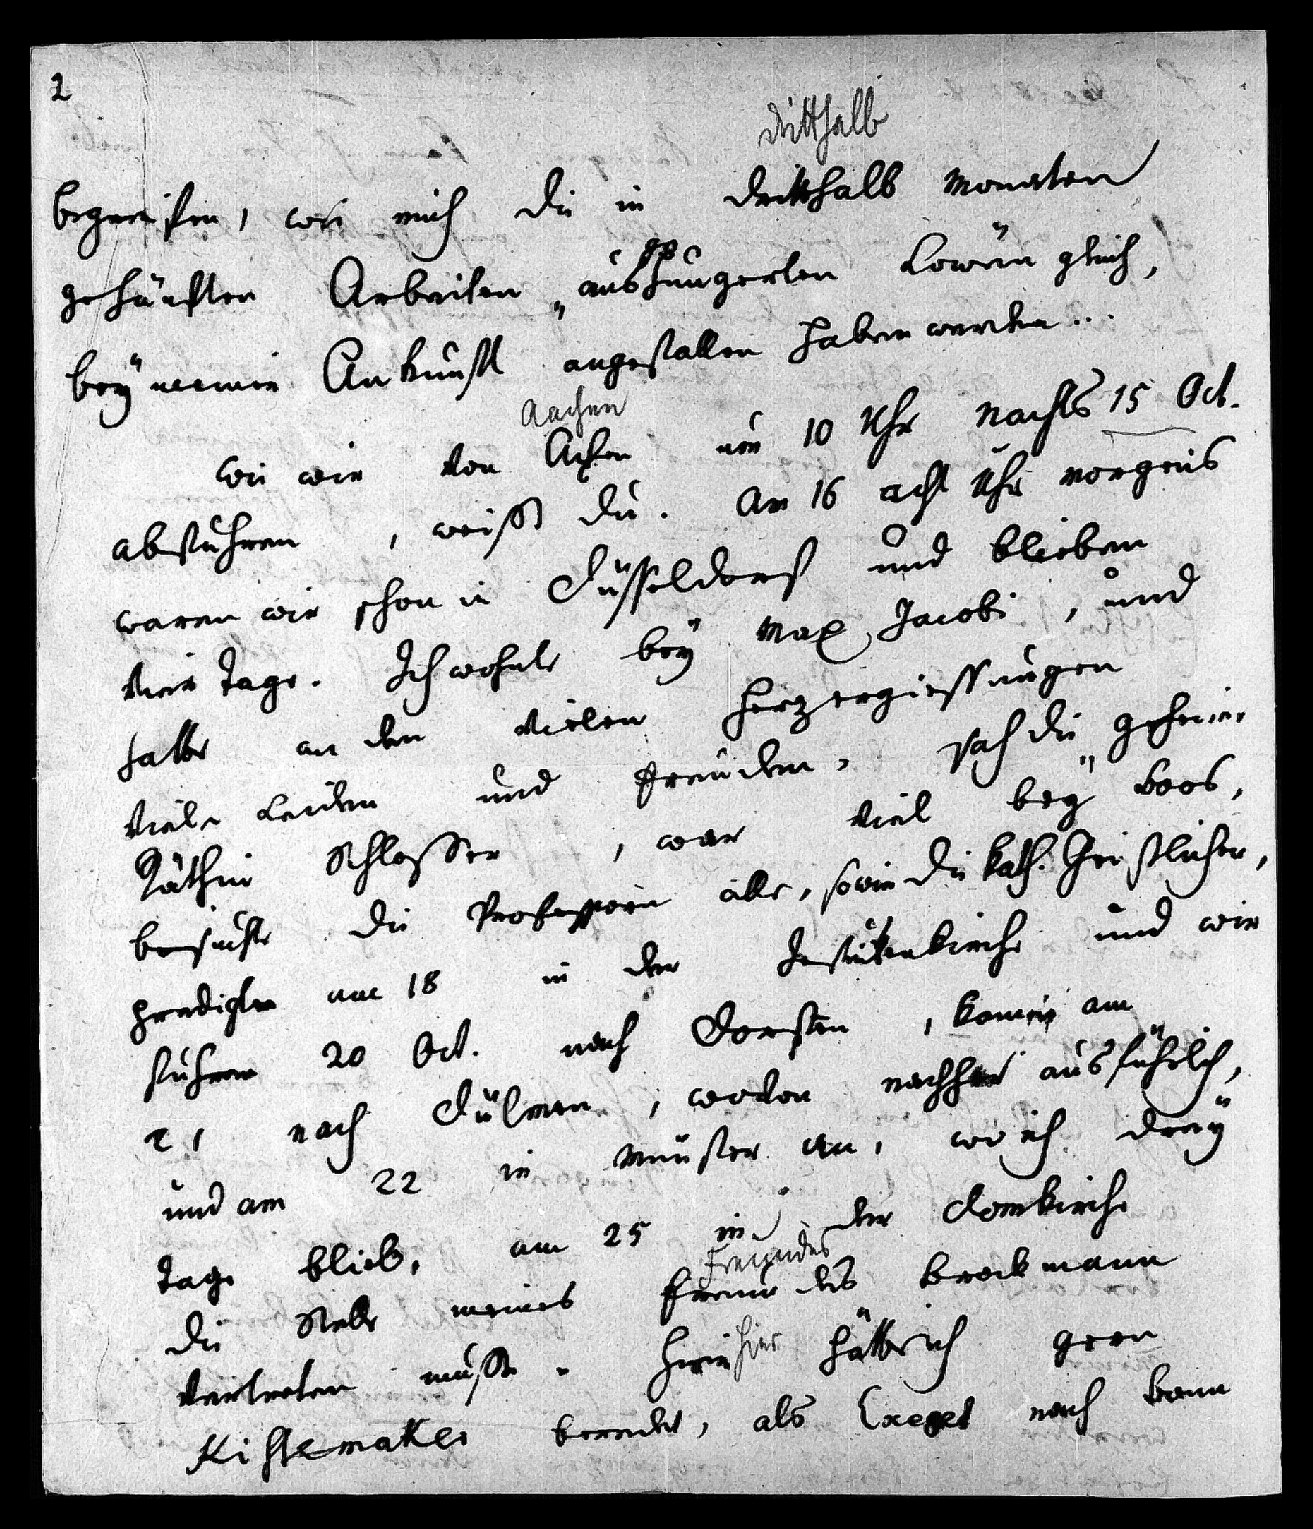 2
dritthalb
begreifen, wie mich die in dritthalb Monaten
gehäuften Arbeiten, ausgehungerten Löwen gleich,
bey meiner Ankunft angefallen haben werden...
Aachen
Wie wir von Achen um 10 Uhr Nachts 15 Oct.
abfuhren, weißt du. Am 16 acht Uhr morgens
waren wir schon in Düsseldorf und blieben
vier Tage. Ich wohnte bey Max Jacobi, und
hatte an den vielen Herzergiessungen
viele Leiden und Freuden, sah die geheime
Räthin Schlosser, war viel bey Boos,
besuchte die Professoren alle, sowie die kath. Geistlichen,
predigte am 18 in der Jesuitenkirche und wir
fuhren 20 Oct. nach Dorsten, kamen am
21 nach Dülmen, wovon nachher ausführlich,
und am 22 in Münster an, wo ich drey
Tage blieb, am 25 in der Domkirche
Freundes
die Stelle meines Freundes Brockmann
vertreten mußte. Hier hier hätte ich gern
Kistemaker beredet, als Exeget nach Bonn